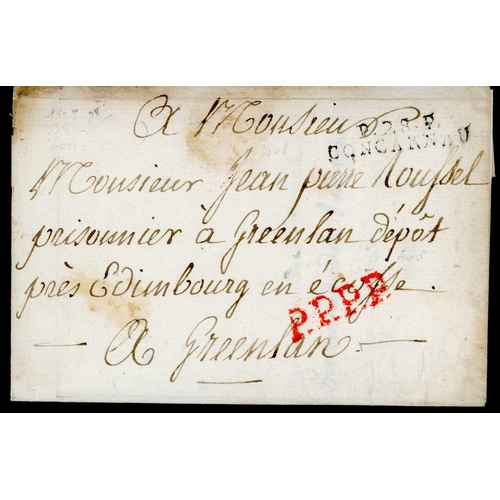 A Monsieur
P.28.P.
CONCARNAU
Monsieur Jean pierre Roussel
prisonnier à Greenlan dépôt
près Edimbourg en écosse.
P.P.P.P.
— A Greenlan —